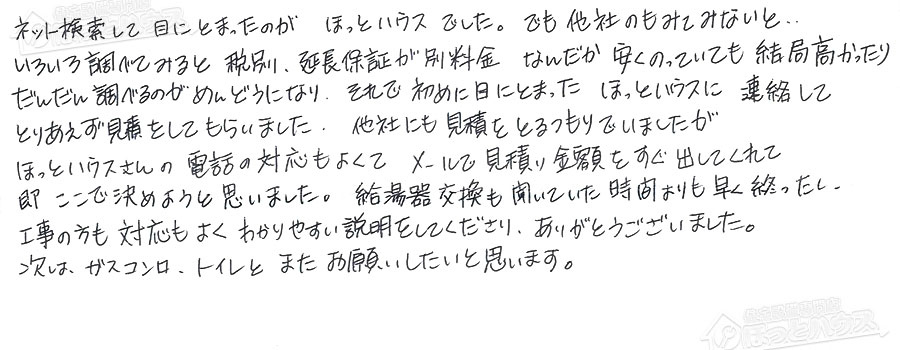 ネット検索して目にとまったのが ほっとハウスでした。でも他社のもみてみないと‥
いろいろ調べてみると税別、延長保証が別料金 なんだか安くのっていても結局高かったり
だんだん調べるのがめんどうになり、それで初めに目にとまった ほっとハウスに連絡して
とりあえず見積をしてもらいました。他社にも見積をとるつもりでいましたが
ほっとハウスさんの電話の対応もよくて メールで見積り金額をすぐ出してくれて
即ここで決めようと思いました。給湯器交換も聞いていた時間よりも早く終ったし、
工事の方も対応もよくわかりやすい説明をしてくださり、ありがとうございました。
次は、ガスコンロ、トイレとまたお願いしたいと思います。
ほっとハウス